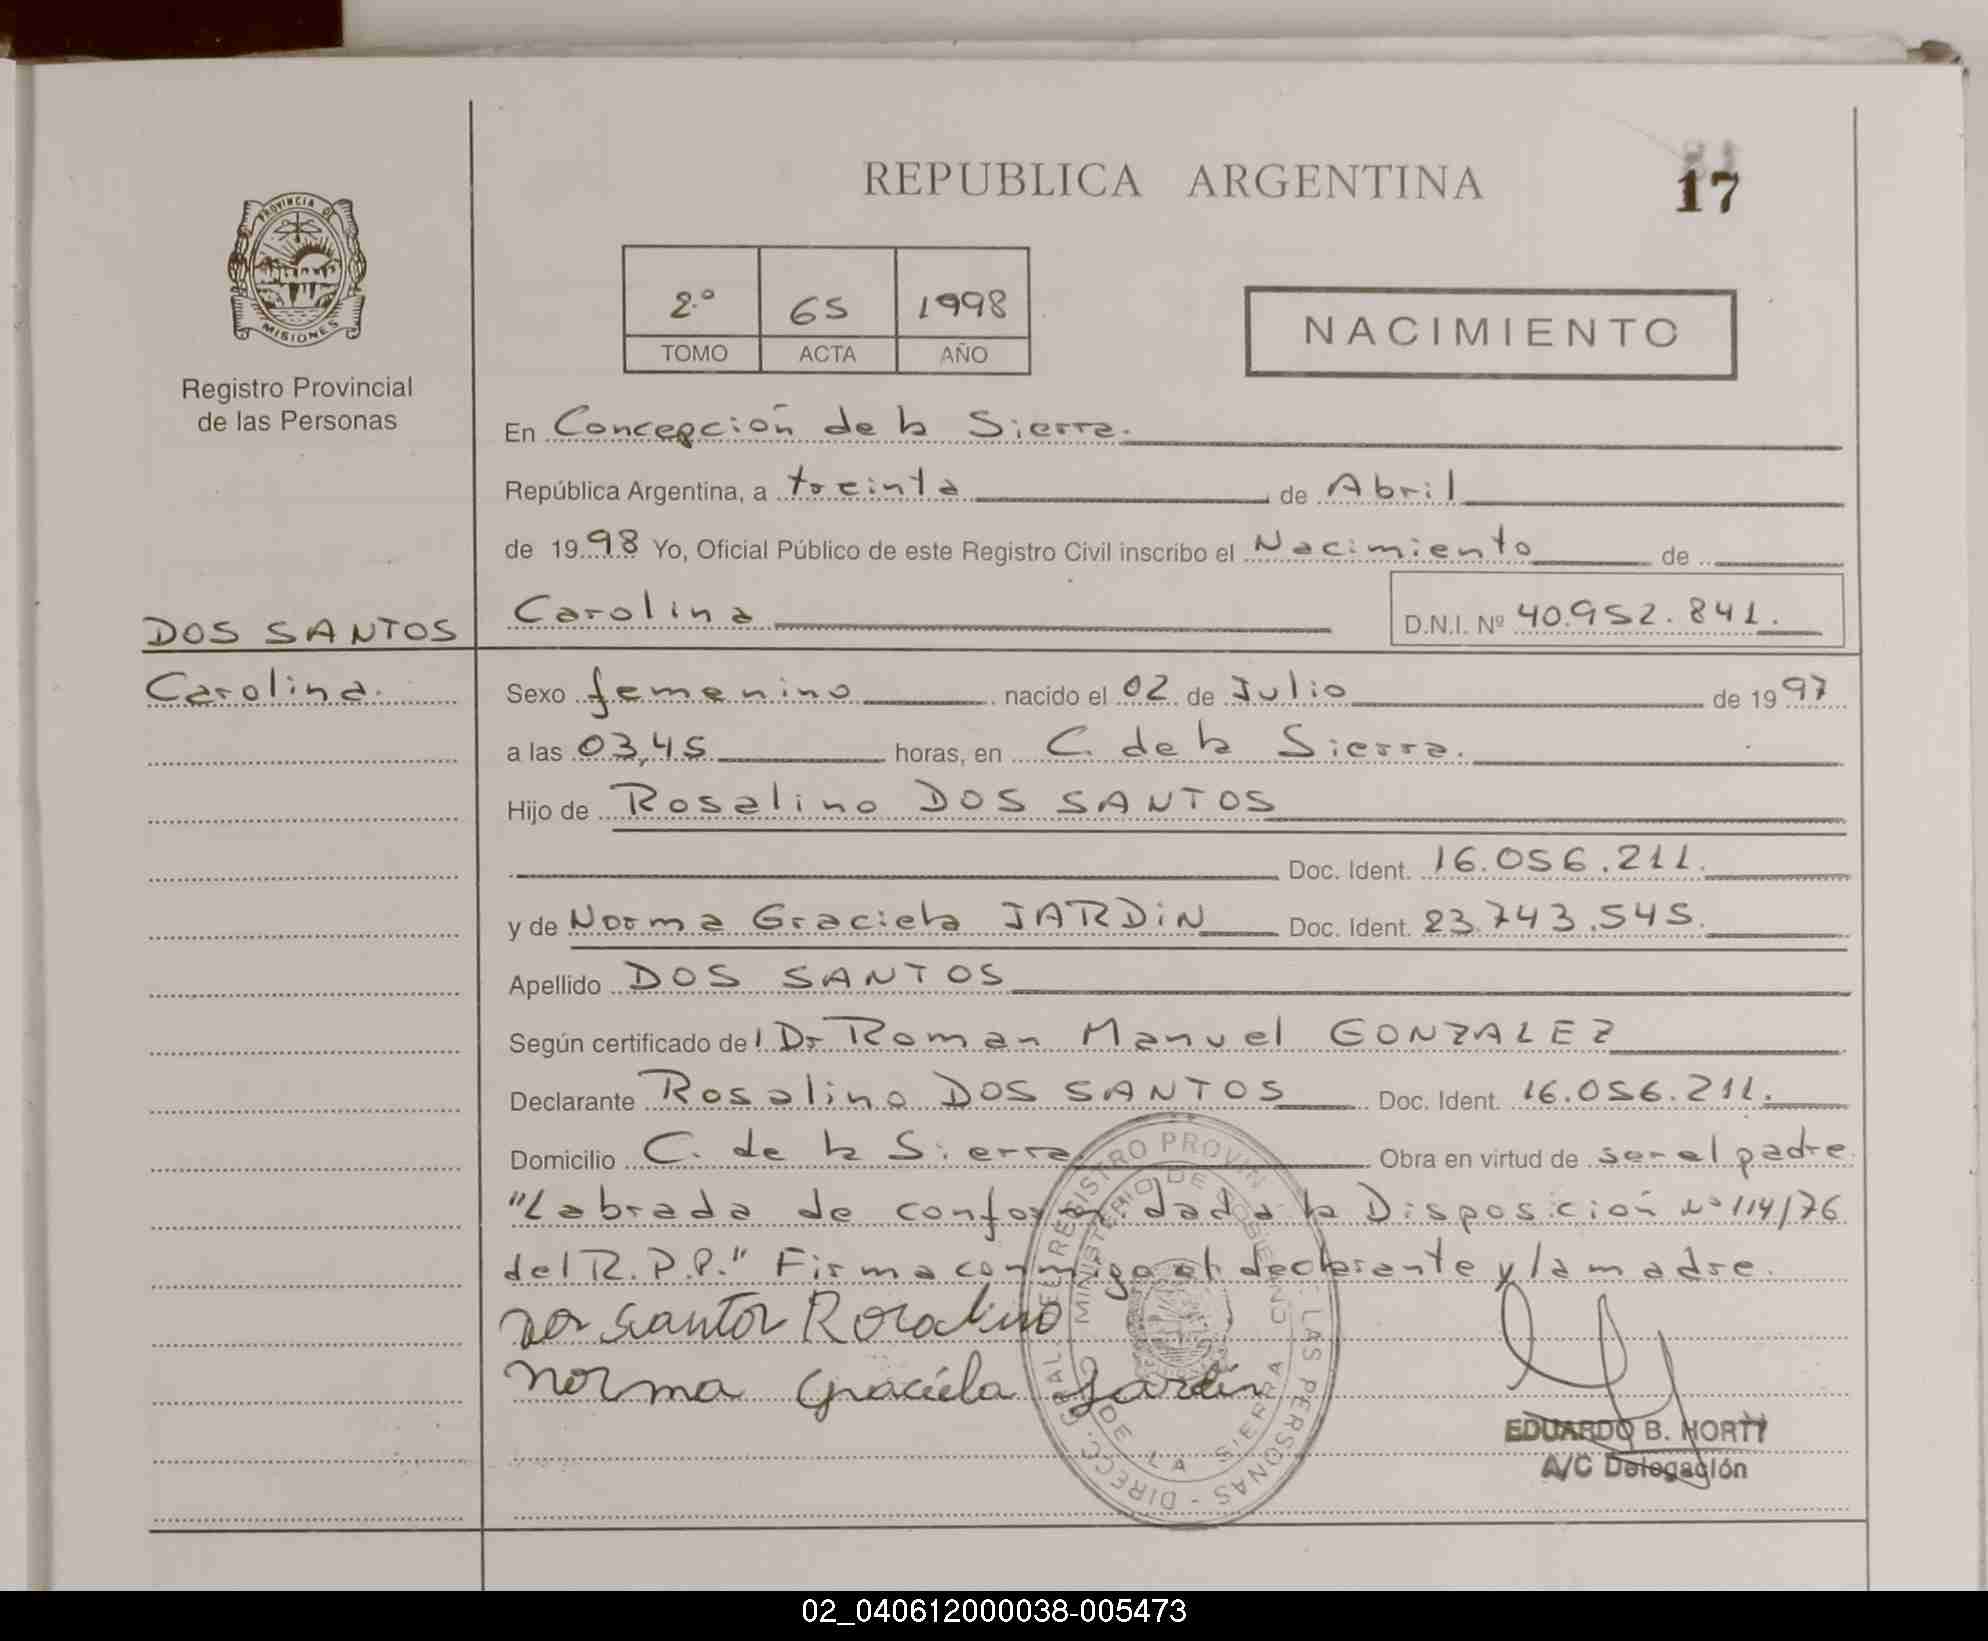 REPUBLICA ARGENTINA
17
PROVINCIA DE
MISIONES
Registro Provincial
de las Personas
2º 65 1998
TOMO ACTA AÑO
NACIMIENTO
En Concepción de la Sierra.
República Argentina, a treinta de Abril
de 1998 Yo, Oficial Público de este Registro Civil inscribo el Nacimiento de
Carolina D.N.I. Nº 40.952.841.
DOS SANTOS
Carolina.
Sexo femenino nacido el 02 de Julio de 1997
a las 03,45 horas, en C. de la Sierra.
Hijo de Rosalino DOS SANTOS
Doc. Ident. 16.056.211.
y de Norma Graciela JARDiN Doc. Ident. 23.743.545.
Apellido DOS SANTOS
Según certificado del Dr Roman Manuel GONZALEZ
Declarante Rosalino DOS SANTOS Doc. Ident. 16.056.211.
Domicilio C. de la Sierra Obra en virtud de ser el padre
"Labrada de conformidad a la Disposición Nº 114/76
del R.P.P." Firma conmigo el declarante y la madre.
Dos Santos Rosalino
Norma Graciela Jardin
EDUARDO B. HORTT
A/C Delegación
DIRECC. GRAL. DEL REGISTRO PROVIN DE LAS PERSONAS -
MINISTERIO DE GOBIERNO
DE LA SIERRA
02_040612000038-005473